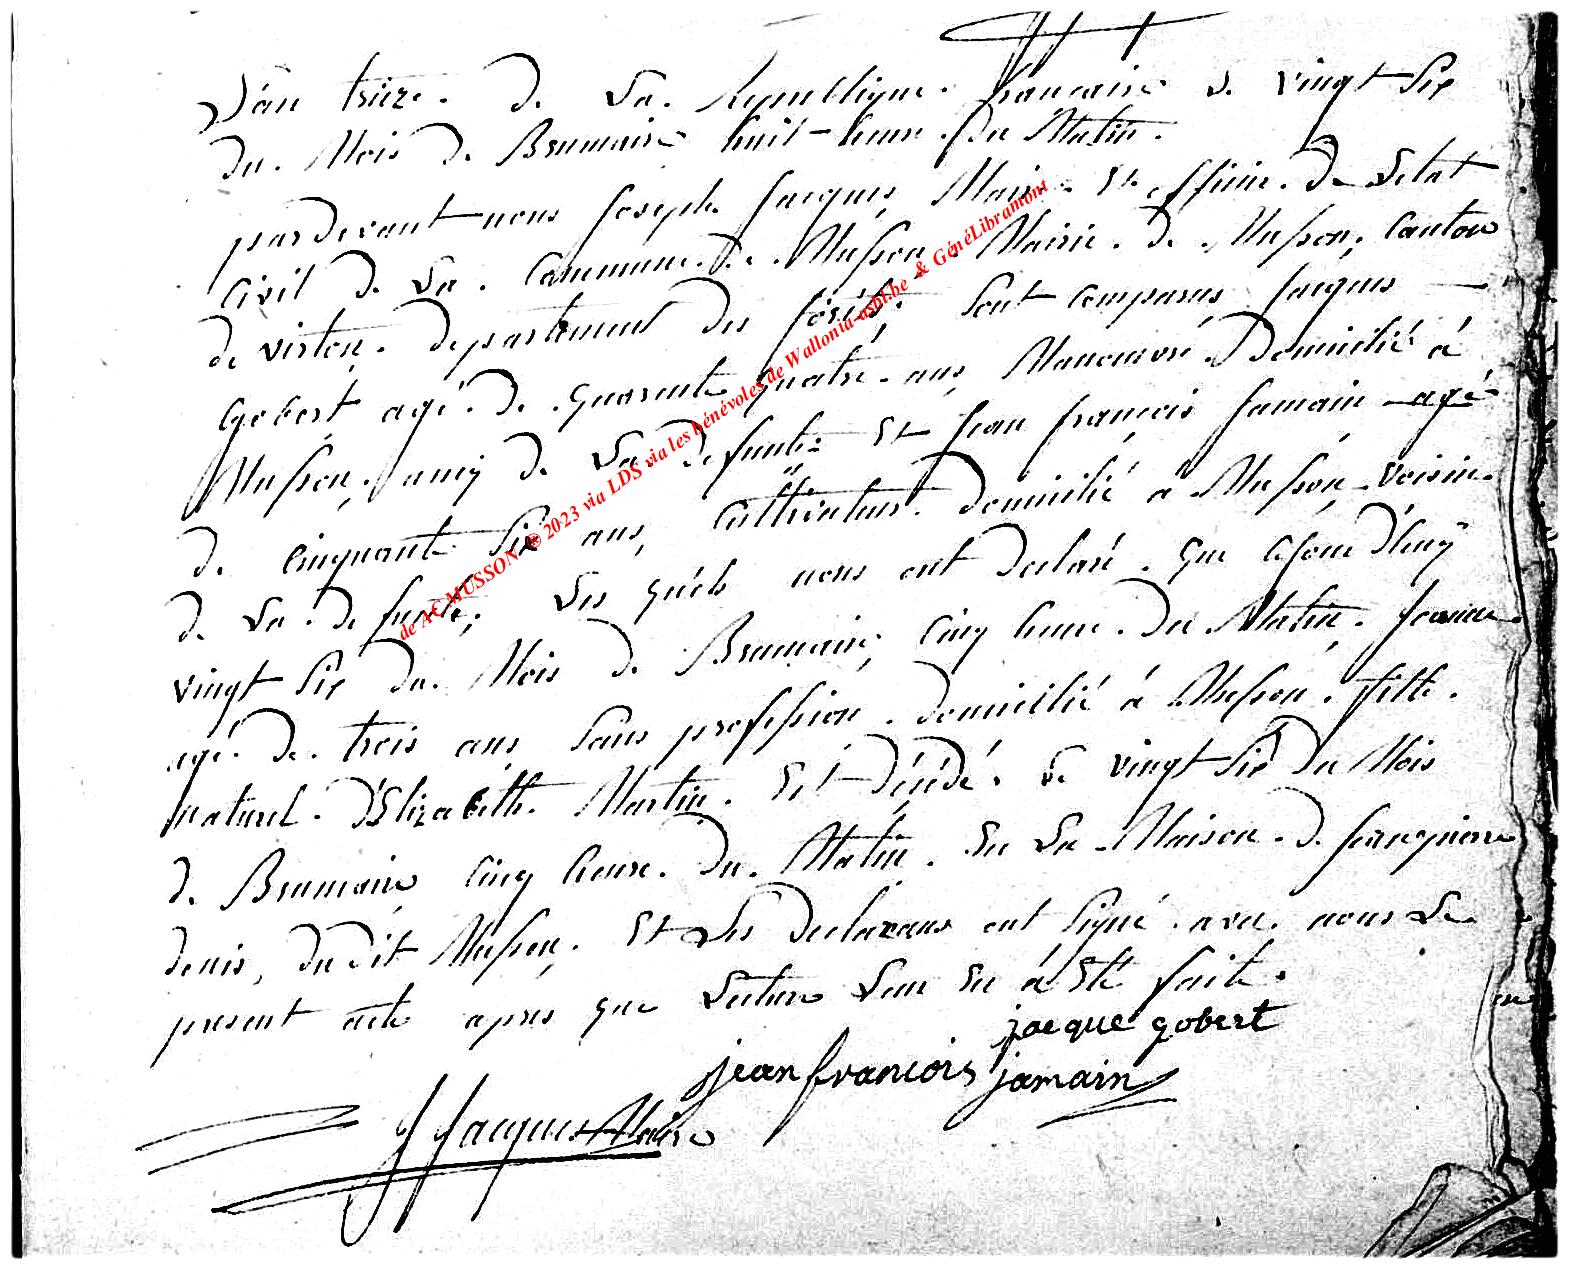 L'an treize de la Republique francaise le vingt six
du Mois de Brumaire huit heure du Matin.
pardevant nous Joseph Jacques Maire et officier de l'etat
Civil de la Commune de Musson Mairie de Musson, Canton
de virton, departement des forêts, sont comparus Jacques
Gobert agé de quarente quatre ans, Manoeuvre domicilié à
Musson, amy de la defunte et Jean françois Jamain agé
de cinquante six ans, Cultivateur domicilié à Musson voisin
de la defunte, les quels nous ont declaré que cejourd'huy
vingt six du Mois de Brumaire, Cinq heure du Matin, Jeanne
agé de trois ans sans profession domicilié à Musson fille
naturel d'Elizabeth Martin est décédé le vingt six du Mois
de Brumaire Cinq heure du Matin en la Maison de Jeanpierre
denis, dudit Musson, et les declarans ont signé avec nous le
present acte apres que lecture leur en à eté faite.
jacque gobert
jean francois jamain
JJacques Maire
de AC MUSSON © 2023 via LDS via les bénévoles de Wallonia-asbl.be & GénéLibramont